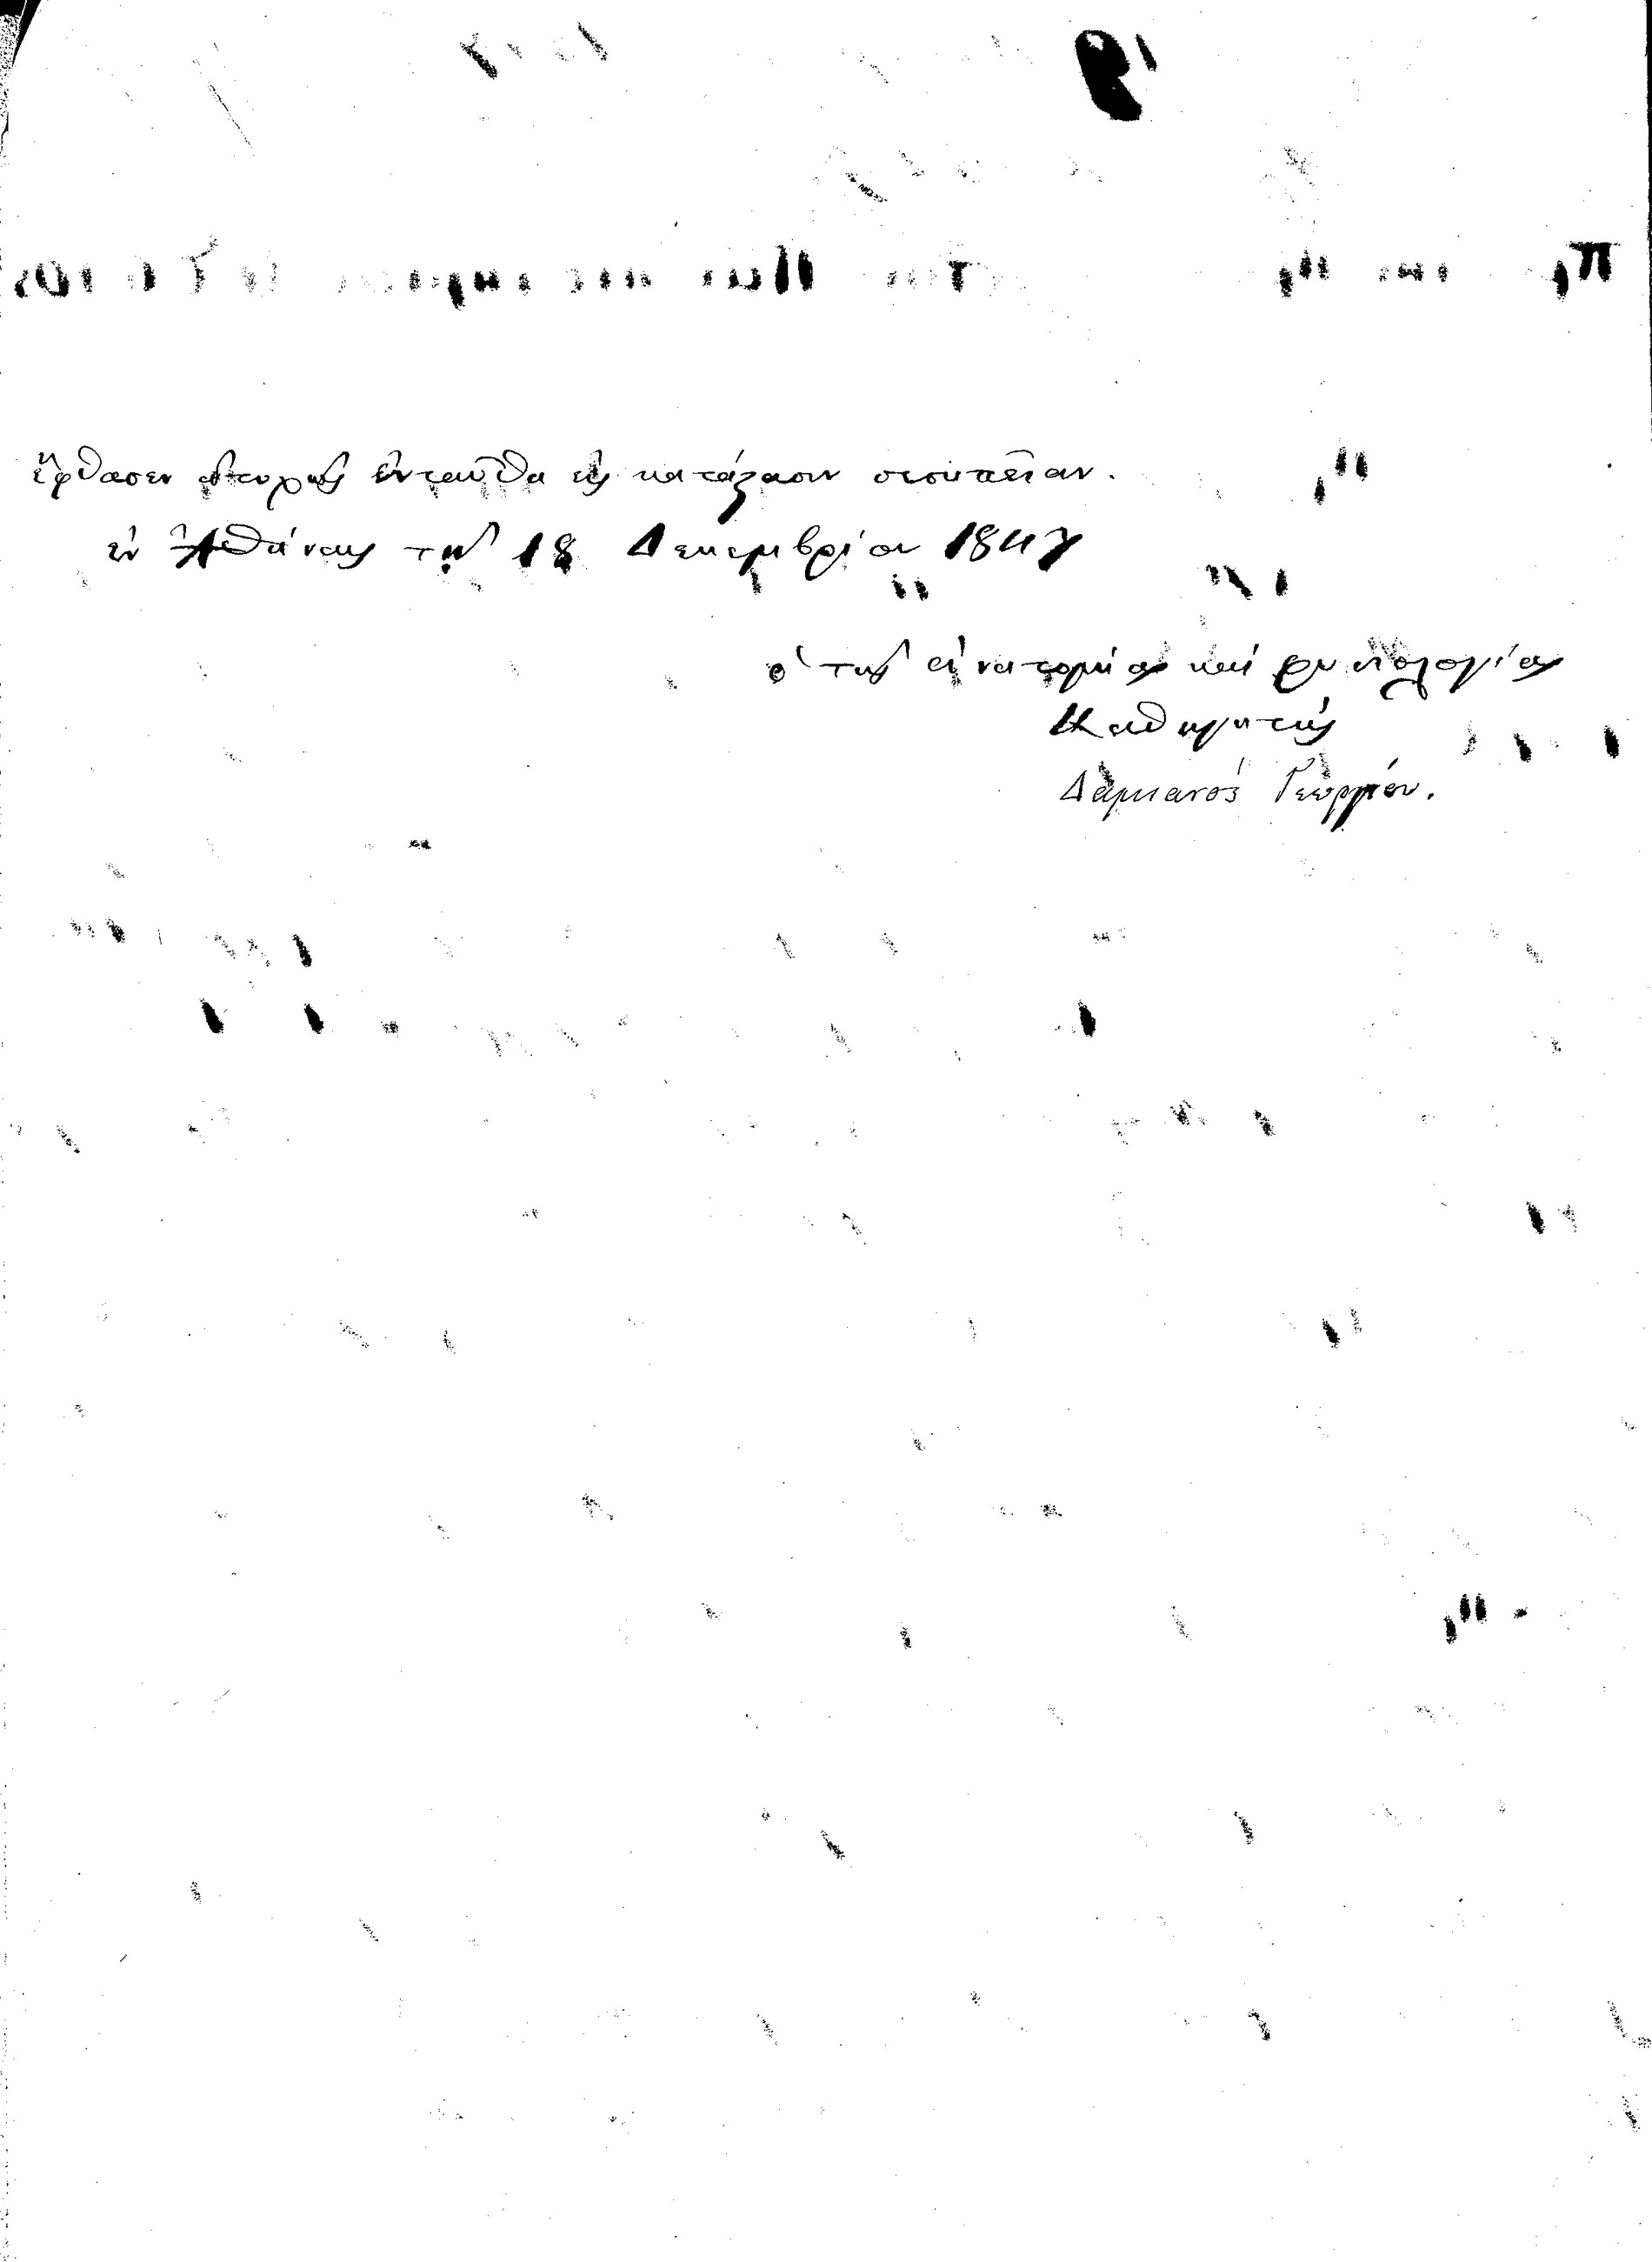 ἔφθασεν εὐτυχῶς ἐνταῦθα εἰς κατάστασιν
ἐν Ἀθήναις τῇ 18 Δεκεμβρίου 1847
ὁ τῆς ἀνατομίας καὶ φυσιολογίας
Καθηγητής
Δαμιανός Γεωργίου.